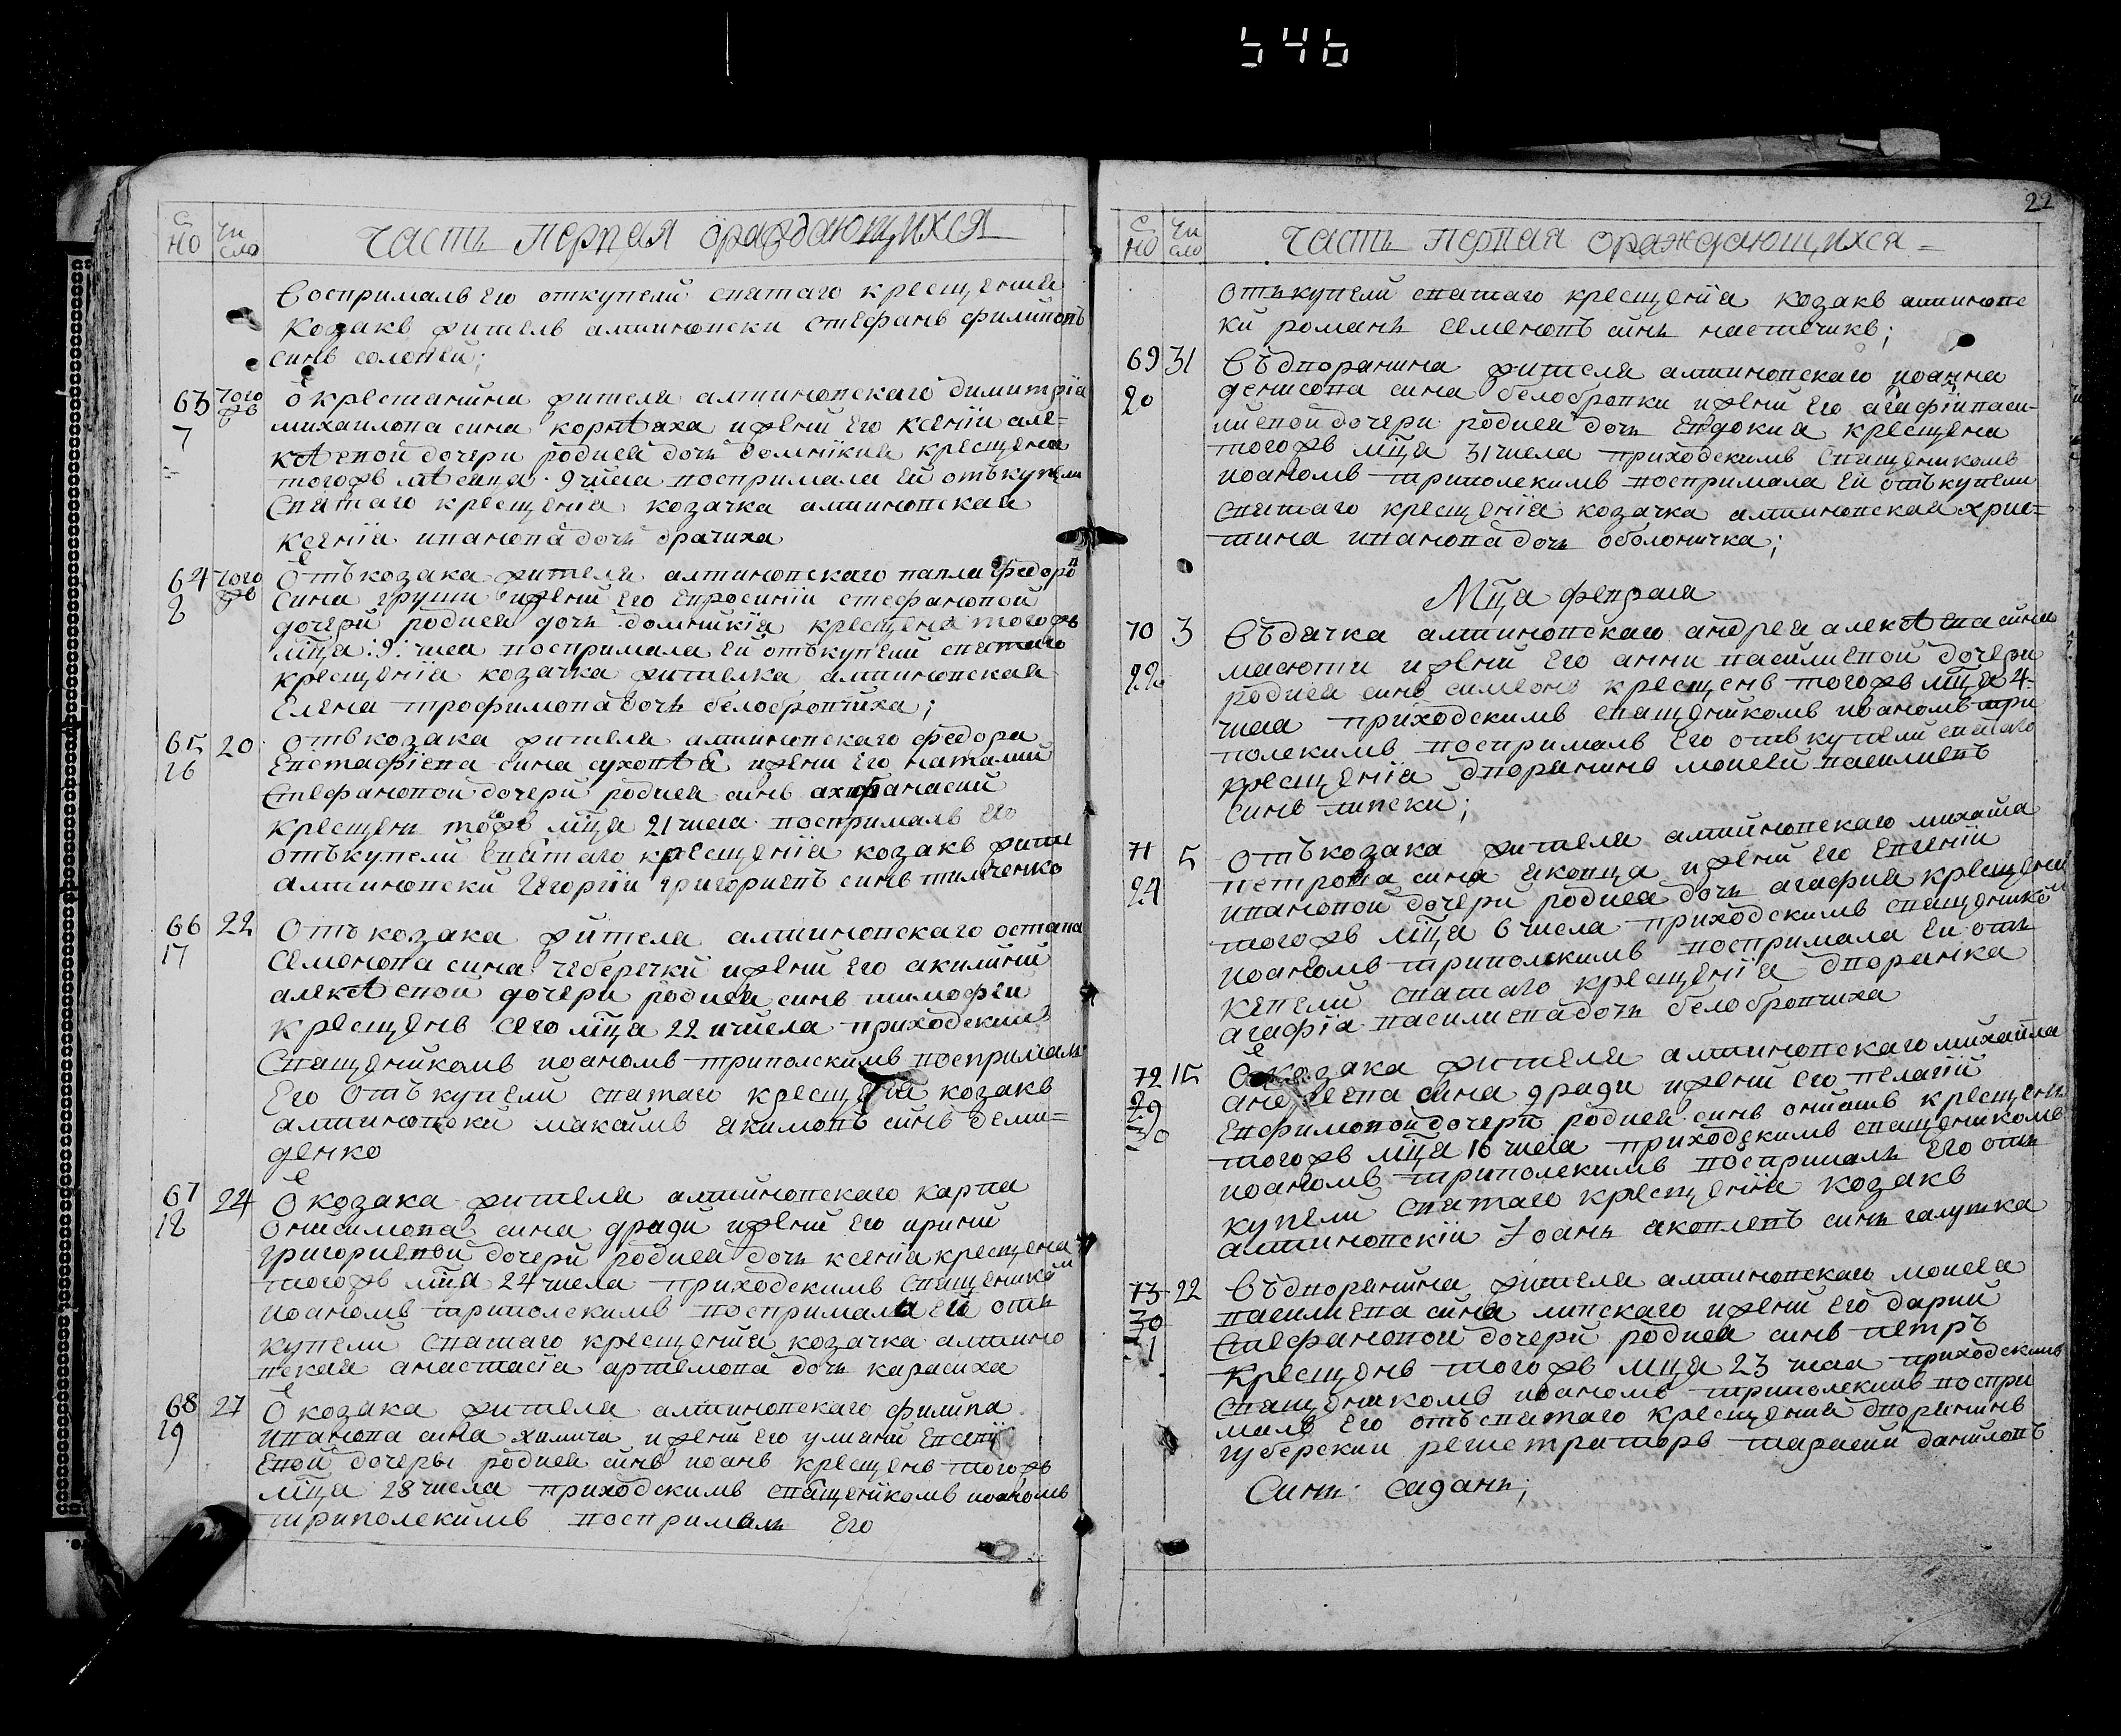 546
22
С
НО
Чи
сло
Часть первая ораждающихся
Воспрималъ его откупели святаго крещения
козакъ житель алтиновски стефанъ филиповъ
синъ солопей;
63 того жъ
7
ѿ крестянина жителя алтиновскаго димитрія
михаилова сина корнѣяха и жени его ксении але-
ксѣевой дочери родися дочь домникия крещена
тогожъ мѣсяца 9 числа воспримала ей отъ купели
святаго крещения козачка алтиновская
ксения иванова дочь драчиха
64 того жъ
8
Отъ козака жителя алтиновскаго павла федоро
сина груши и жени его евросинии стефановой
дочери родися дочь домникія крещена тогожъ
мца 9 числа воспримала ей отъ купели святаго
крещения козачка жителка алтиновская
Елена трофимова дочь белобровчиха;
65 20
16
Отъ козака жителя алтиновскаго федора
Евстафіева сина сухопѣ и жени его наталии
Стефановой дочери родися синъ афанасий
крещенъ тогожъ мца 21 числа воспрималъ его
отъ купели святаго крещения козакъ жите
алтиновски Георгии григориевъ синъ тимченко
66 22
17
Отъ козака жителя алтиновскаго остапа
Семенова сина чеберечки и жени его акилини
алексѣевой дочери родися синъ тимофеи
крещенъ сего мца 22 числа приходским
Священикомъ иоаномъ триполскимъ воспрималъ
Его отъ купели святаго крещения козакъ
алтиновски максимъ якимовъ синъ деми=
денко
67 24
18
ѿ козака жителя алтиновскаго карпа
Онисимова сина дради и жени его ирини
григориевой дочери родися дочь ксения крещена
тогожъ мца 24 числа приходскимъ священикѡ
иоаномъ триполскимъ воспримала ей отъ
купели святаго крещения козачка алтино
вская анастасія артемова дочь карасиха
68 27
19
ѿ козака жителя алтиновскаго филипа
иванова сина химича и жени его улияни Евсеви
Евой дочеры родися синъ иоанъ крещенъ тогожъ
мца 28 числа приходскимъ священикомъ иоаномъ
триполскимъ воспрималъ его
С
НО
Чи
сло
Часть первая ораждающихся
отъ купели святаго крещения козакъ алтиновс
ки романъ семеновъ синъ настичикъ;
69 31
20
Въ дворянина жителя алтиновскаго иоанна
денисова сина белобровки и жени его агафии васи-
лиевой дочери родися дочь Евдокия крещена
тогожъ мца 31 числа приходскимъ священикомъ
иоаномъ триполскимъ воспримала ей отъ купели
святаго крещения козачка алтиновская хрис=
тина иванова дочь оболоничка;
Мца феврала
70 3
22
Въ дячка алтиновскаго андрея алексѣева сина
масюти и жени его анни василиевой дочери
родися синъ симеонъ крещенъ тогожъ мца 4
числа приходскимъ священикомъ иоаномъ три
полскимъ воспрималъ его отъ купели святаго
крещения дворянинъ моисей василиевъ
синъ липски;
71 5
24
Отъ козака жителя алтиновскаго михаила
петрова сина яковца и жени его Евгении
ивановой дочери родися дочь агафия крещена
тогожъ мца 6 числа приходскимъ священикѡ
иоаномъ триполскимъ воспримала ей отъ
купели святаго крещения дворянка
агафія василиева дочь белобровчиха
72 15
29
30
ѿ козака жителя алтиновскаго михаила
андреева сина дради и жени его пелагии
Евфимовой дочери родися синъ онисимъ крещенъ
тогожъ мца 16 числа приходскимъ священикомъ
иоаномъ триполскимъ воспрималъ его отъ
купели святаго крещения козакъ
алтиновскіи Іоанъ яковлевъ синъ галушка
73 22
30
31
Въ дворянина жителя алтиновскаго моисея
василиева сина липскаго и жени его дарии
Стефановой дочери родися синъ петръ
крещенъ тогожъ мца 23 числа приходскимъ
Священикомъ иоаномъ триполскимъ воспри
малъ его отъ святаго крещения дворянинъ
губерскии регистраторъ тарасии даниловъ
Синъ садань;